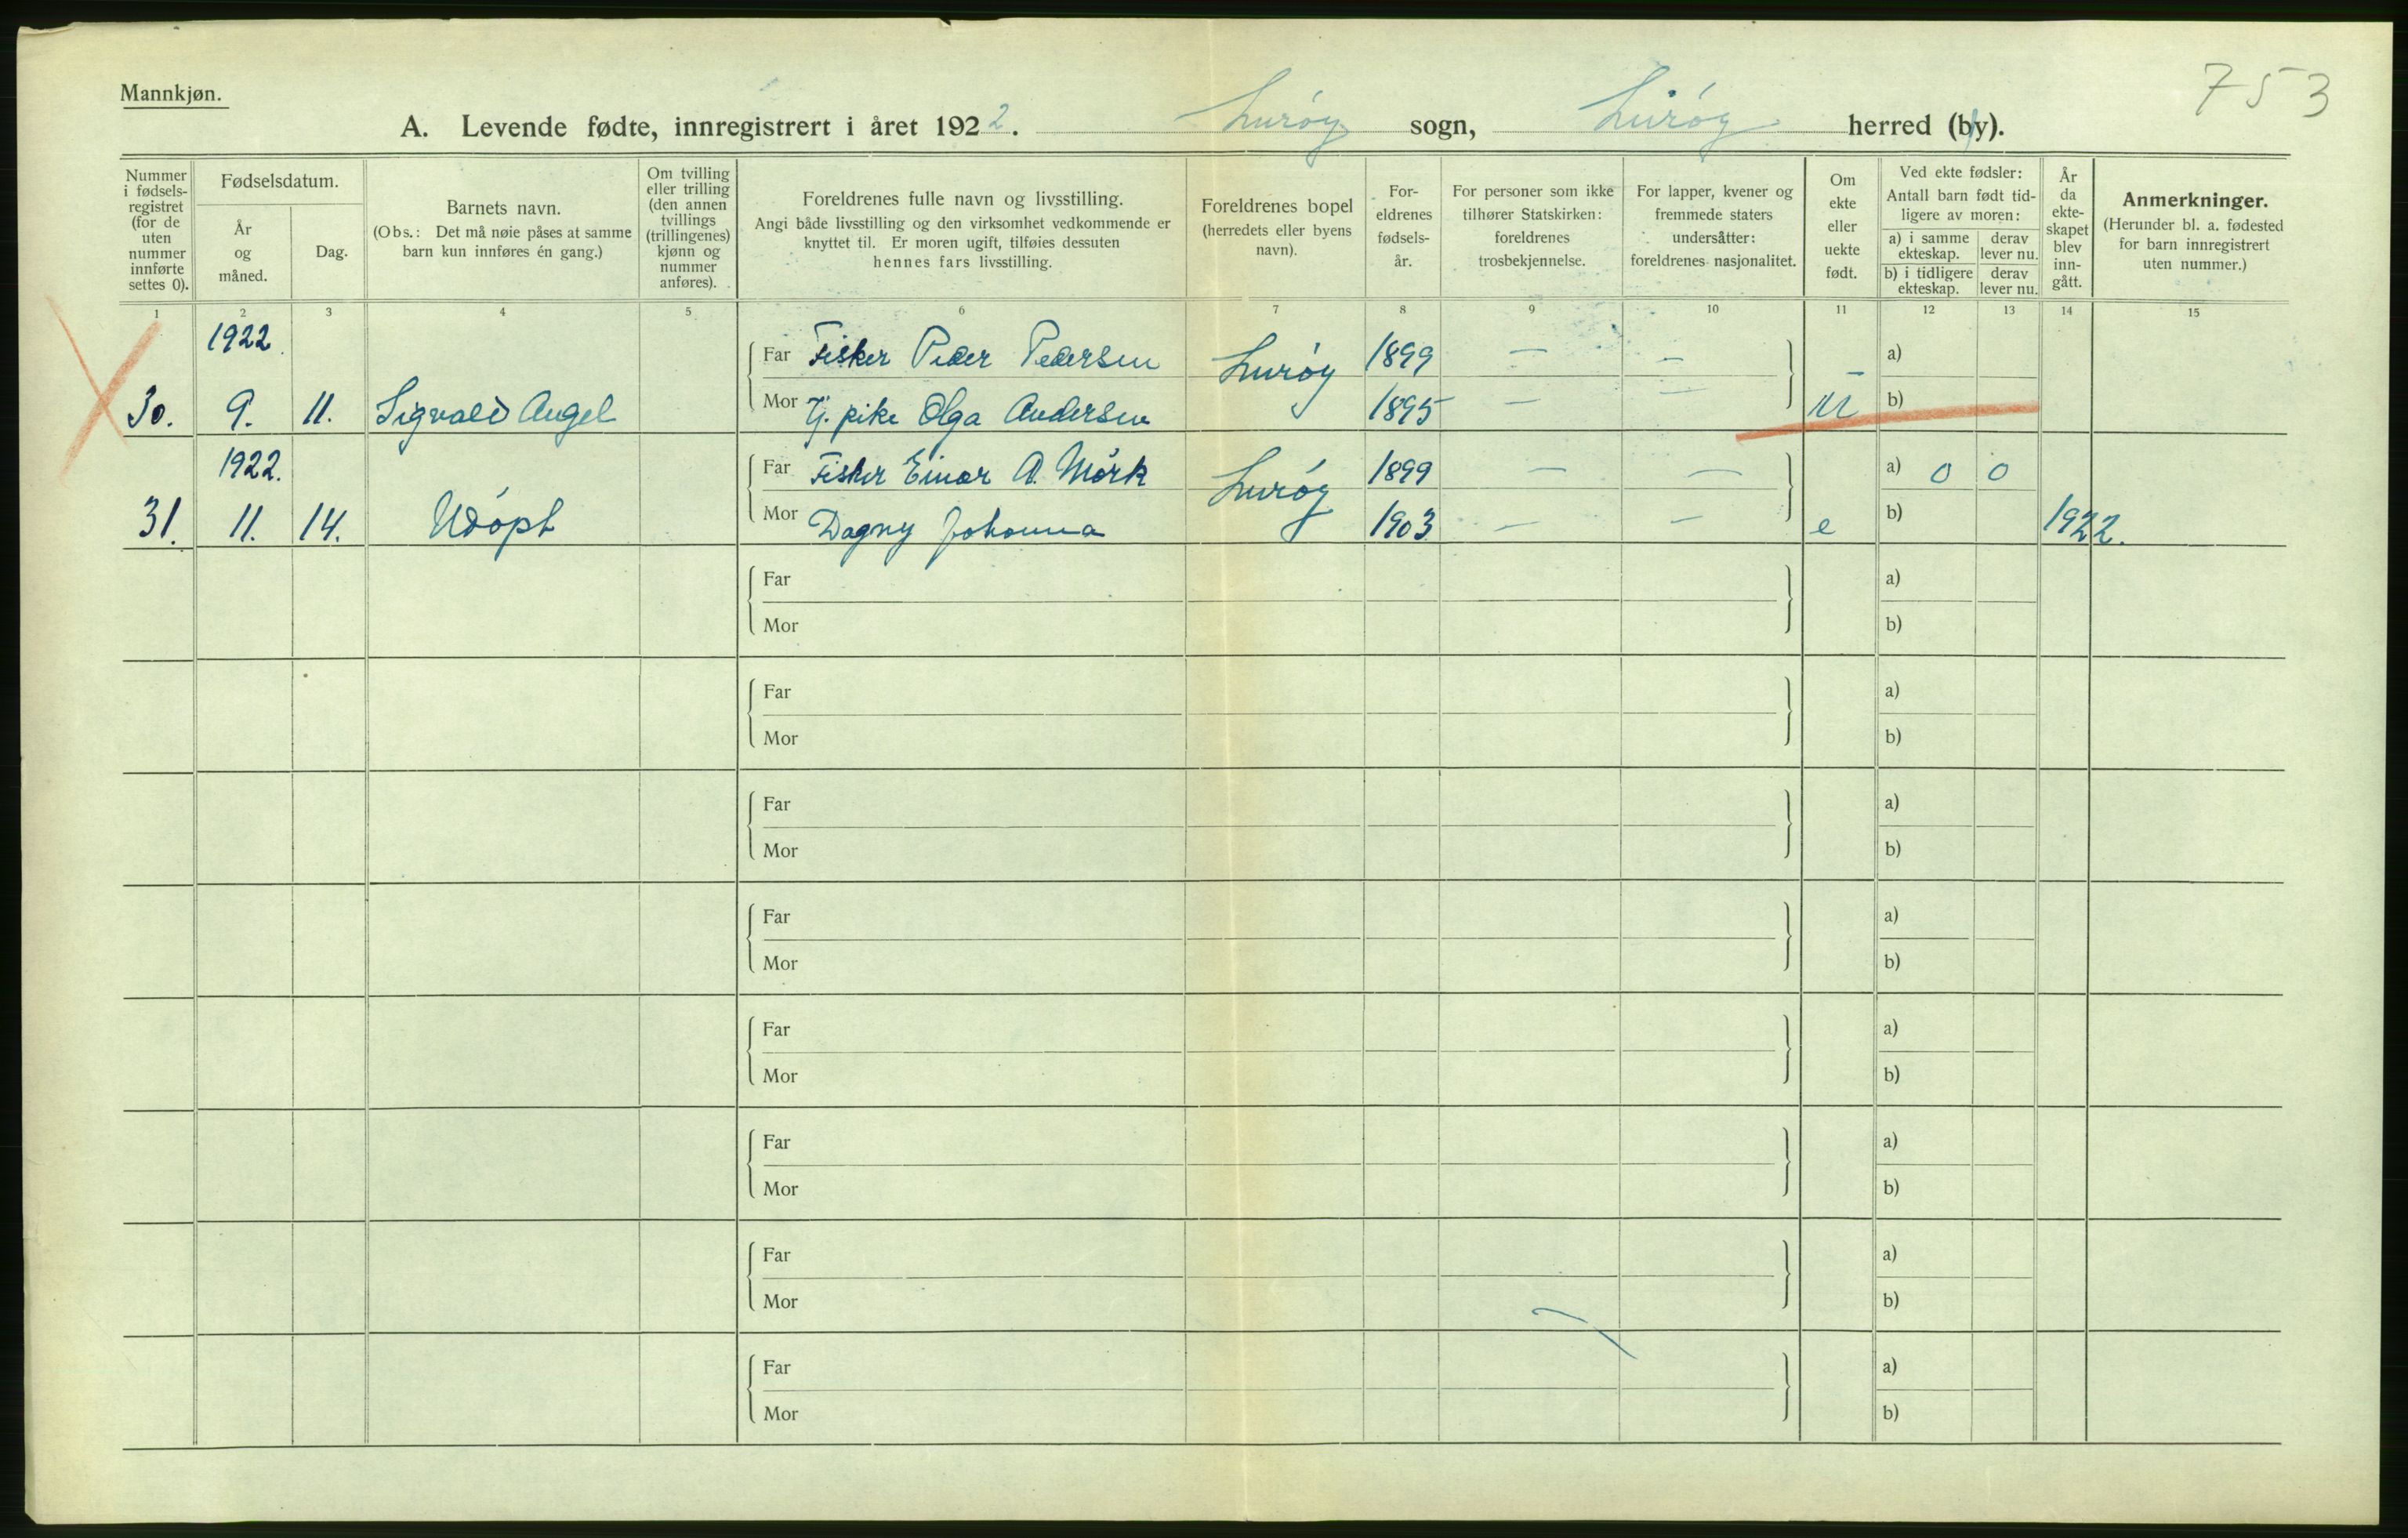 753
Mannkjøn.
A. Levende fødte, innregistrert i året 1922. Lurøy sogn, Lurøy herred (by).
Nummer i fødsels-registret (for de uten nummer innførte settes 0).
Fødselsdatum.
År og måned.
Dag.
Barnets navn.
(Obs.: Det må nøie påses at samme barn kun innføres én gang.)
Om tvilling eller trilling (den annen tvillings (trillingenes) kjønn og nummer anføres).
Foreldrenes fulle navn og livsstilling.
Angi både livsstilling og den virksomhet vedkommende er knyttet til. Er moren ugift, tilføies dessuten hennes fars livsstilling.
Foreldrenes bopel (herredets eller byens navn).
For-eldrenes fødsels-år.
For personer som ikke tilhører Statskirken: foreldrenes trosbekjennelse.
For lapper, kvener og fremmede staters undersåtter: foreldrenes nasjonalitet.
Om ekte eller uekte født.
Ved ekte fødsler: Antall barn født tid-ligere av moren:
a) i samme ekteskap. derav lever nu.
b) i tidligere ekteskap. derav lever nu.
År da ekte-skapet blev inn-gått.
Anmerkninger.
(Herunder bl. a. fødested for barn innregistrert uten nummer.)
1 2 3 4 5 6 7 8 9 10 11 12 13 14 15
1922 Far Fisker Peder Pedersen Lurøy 1899 — — a)
30. 9. 11. Sigvald Angel Mor Tj. pike Olga Andersen 1895 — — U b)
1922. Far Fisker Einar A. Mörk Lurøy 1899 — — a) 0 0
31. 11. 14. Udöpt Mor Dagny Johanna 1903 — — e b) 1922.
Far a)
Mor b)
Far a)
Mor b)
Far a)
Mor b)
Far a)
Mor b)
Far a)
Mor b)
Far a)
Mor b)
Far a)
Mor b)
Far a)
Mor b)